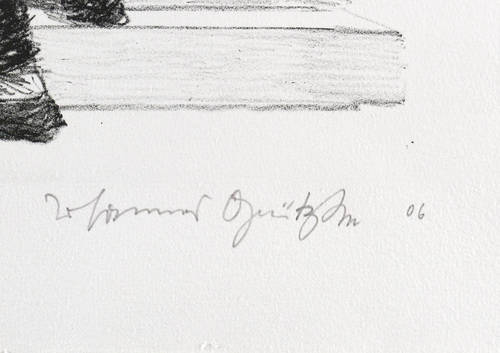 Johannes Grützke 06